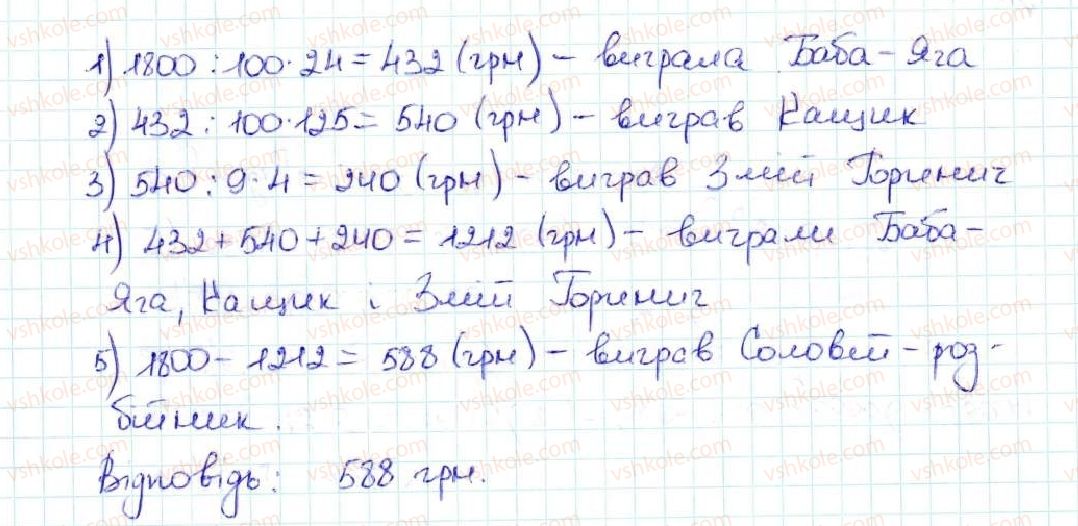 1) 1800 : 100 · 24 = 432 (грн) – виграла Баба-Яга
2) 432 : 100 · 125 = 540 (грн) – виграв Кащик
3) 540 : 9 · 4 = 240 (грн) – виграв Змій Горинич
4) 432 + 540 + 240 = 1212 (грн) – виграли Баба-
Яга, Кащик і Змій Горинич
5) 1800 – 1212 = 588 (грн) – виграв Соловей-роз-
бійник.
Відповідь: 588 грн.